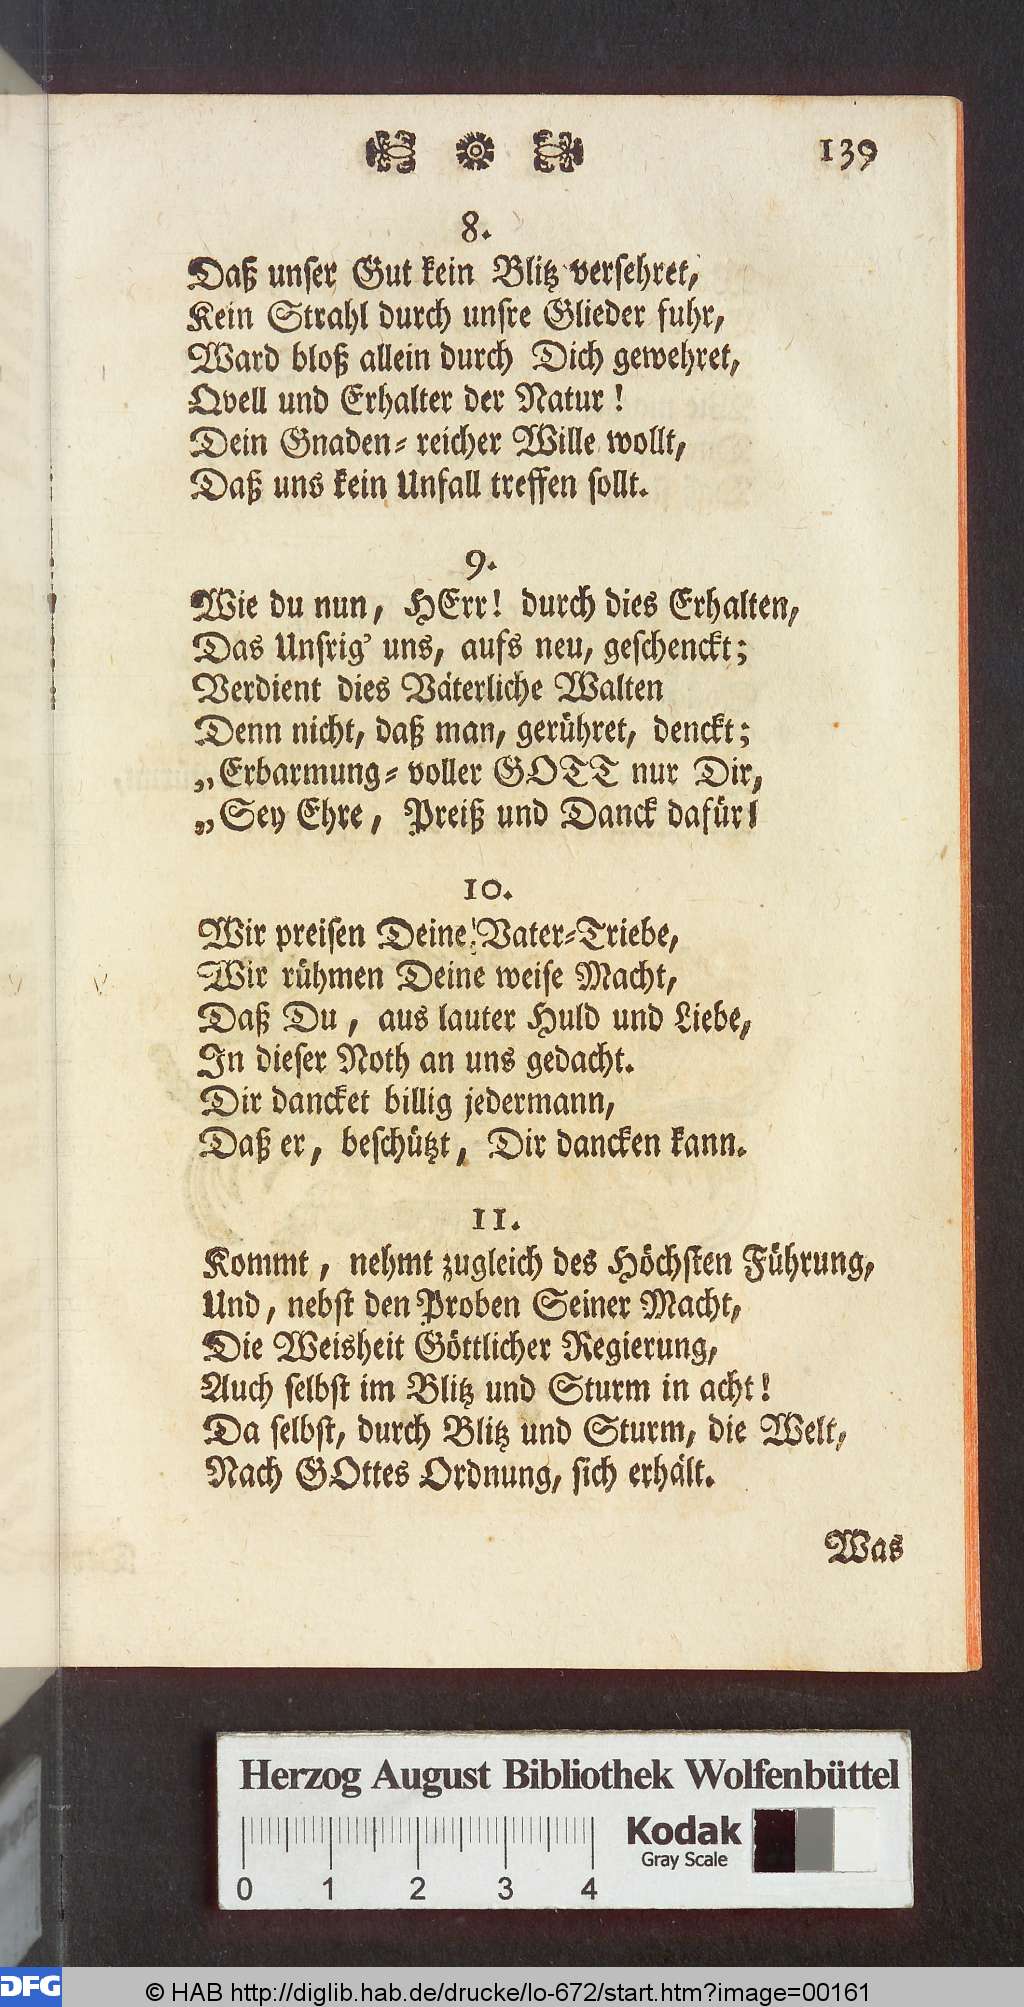 139
8.
Daß unser Gut kein Blitz versehret,
Kein Strahl durch unsre Glieder fuhr,
Ward bloß allein durch Dich gewehret,
Qvell und Erhalter der Natur!
Dein Gnaden-reicher Wille wollt,
Daß uns kein Unfall treffen sollt.
9.
Wie du nun, HErr! durch dies Erhalten,
Das Unsrig' uns, aufs neu, geschenckt;
Verdient dies Väterliche Walten
Denn nicht, daß man, gerühret, denckt;
„Erbarmung-voller GOTT nur Dir,
„Sey Ehre, Preiß und Danck dafür!
10.
Wir preisen Deine Vater-Triebe,
Wir rühmen Deine weise Macht,
Daß Du, aus lauter Huld und Liebe,
In dieser Noth an uns gedacht.
Dir dancket billig jedermann,
Daß er, beschützt, Dir dancken kann.
11.
Kommt, nehmt zugleich des Höchsten Führung,
Und, nebst den Proben Seiner Macht,
Die Weisheit Göttlicher Regierung,
Auch selbst im Blitz und Sturm in acht!
Da selbst, durch Blitz und Sturm, die Welt,
Nach GOttes Ordnung, sich erhält.
Was
Herzog August Bibliothek Wolfenbüttel
Kodak
Gray Scale
0 1 2 3 4
DFG
© HAB http://diglib.hab.de/drucke/lo-672/start.htm?image=00161